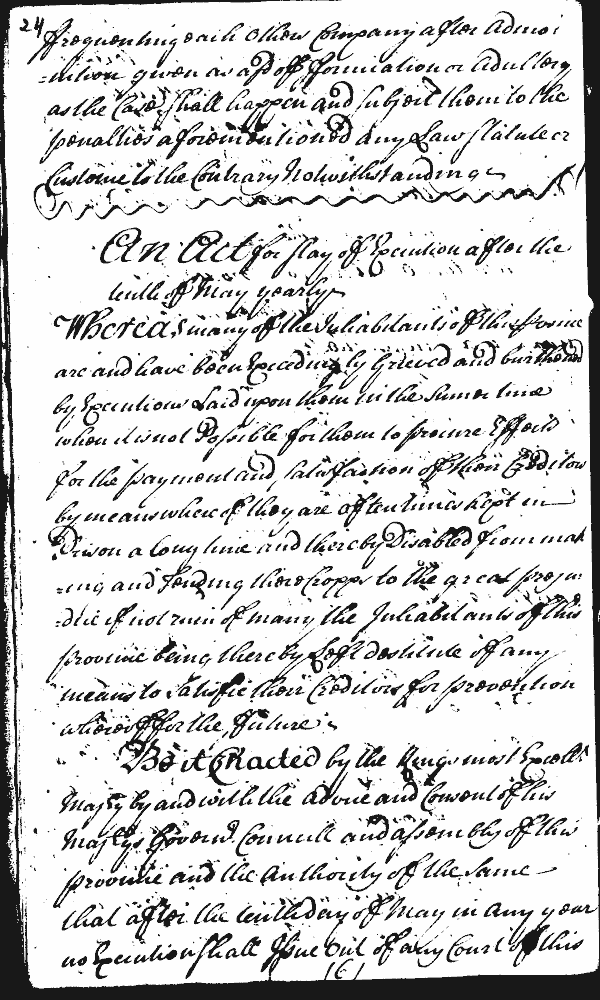 24
frequenting each others Company after Admoi
=nition given as a p.d of fformication or Adultery
as the Case shall happen and subject them to the
penalties aforementioned any Law statute or
Custome to the Contrary Notwithstanding
An Act for stay of Execution after the
tenth of May yearly
Whereas many of the Inhabitants of this Provine
are and have been Exceedingly Grieved and burthened
by Executions Laid upon them in the Sumer time
when it is not Possible for them to procure Effects
for the payment and satisfaction of their Creditors
by means whereof they are oftentimes kept in
Prison a long time and thereby Disabled from mak
=ing and Tending there Cropps to the great preju
=dice if not ruin of many the Inhabitants of this
province being thereby Left destitute of any
means to satisfie their Creditors for prevention
whereof for the ffuture
Be it Enacted by the Kings most Excellt
Majty by and with the advice and Consent of his
Majtys Govern. Councill and assembly of this
province and the Authority of the same
that after the tenth day of May in any year
no Execution shall Issue out of any Court of this
(6)